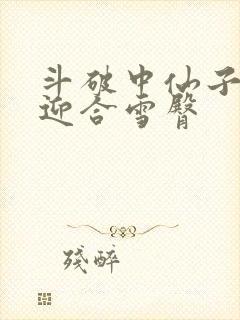 斗破中仙子
迎合雪臀
残醉